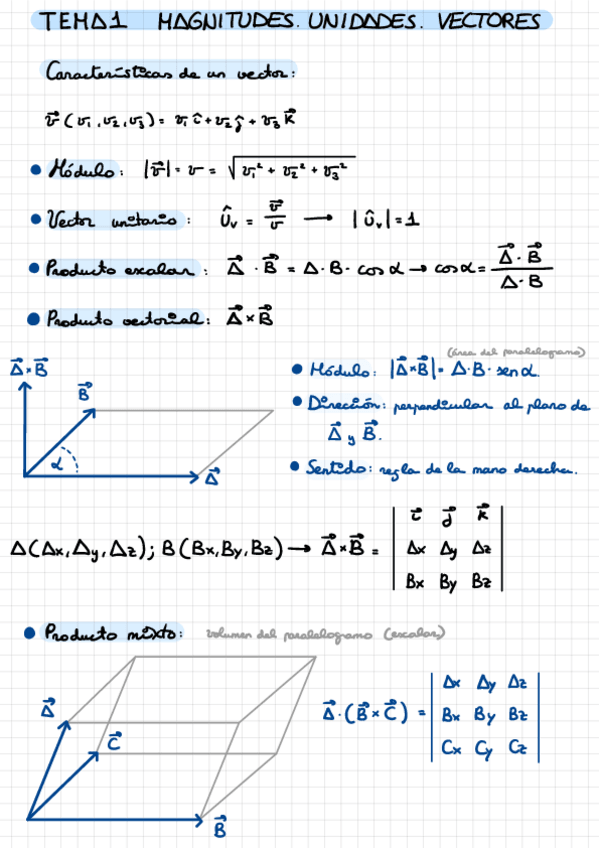 TEMA 1 MAGNITUDES. UNIDADES. VECTORES
Características de un vector:
v⃗ (v₁, v₂, v₃) = v₁ î + v₂ ĵ + v₃ k⃗
• Módulo: |v⃗| = v = √(v₁² + v₂² + v₃²)
• Vector unitario: Ûᵥ = v⃗/v → |ûᵥ| = 1
• Producto escalar: A⃗ · B⃗ = A · B · cos α → cos α = (A⃗ · B⃗)/(A · B)
• Producto vectorial: A⃗ × B⃗
A⃗ × B⃗
B⃗
α
A⃗
(área del paralelogramo)
• Módulo: |A⃗×B⃗| = A · B · sen α.
• Dirección: perpendicular al plano de
A⃗ y B⃗.
• Sentido: regla de la mano derecha.
A(Ax, Ay, Az); B(Bx, By, Bz) → A⃗×B⃗ =
i⃗ j⃗ k⃗
Ax Ay Az
Bx By Bz
• Producto mixto: volumen del paralelogramo (escalar)
A⃗
C⃗
B⃗
A⃗ · (B⃗ × C⃗) =
Ax Ay Az
Bx By Bz
Cx Cy Cz